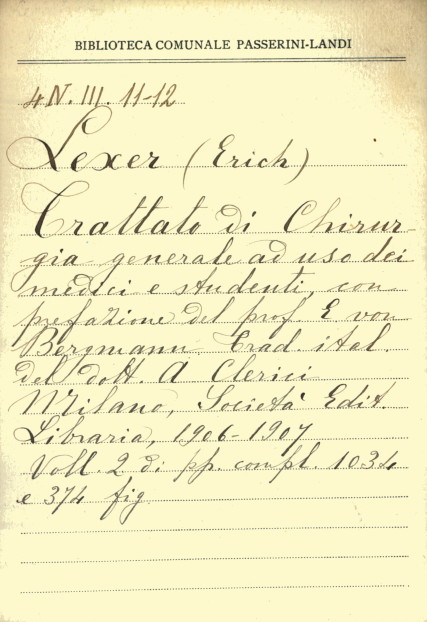 BIBLIOTECA COMUNALE PASSERINI-LANDI
4 N. III. 11-12
Lexer (Erich)
Trattato di Chirur-
gia generale ad uso dei
medici e studenti, con
prefazione del prof. E von
Bergmann. Trad. ital.
del dott. A Clerici
Milano, Società Edit.
Libraria, 1906-1907
Voll. 2 di pp. compl. 1034
e 374 fig